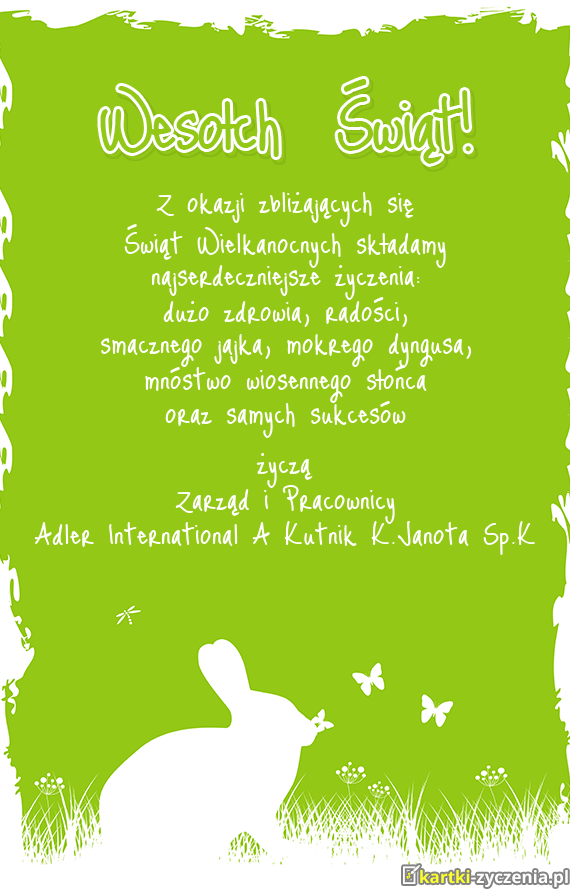 Wesołch Świąt!
Z okazji zbliżających się
Świąt Wielkanocnych składamy
najserdeczniejsze życzenia:
dużo zdrowia, radości,
smacznego jajka, mokrego dyngusa,
mnóstwo wiosennego słońca
oraz samych sukcesów
życzą
Zarząd i Pracownicy
Adler International A Kutnik K.Janota Sp.K
kartki-zyczenia.pl